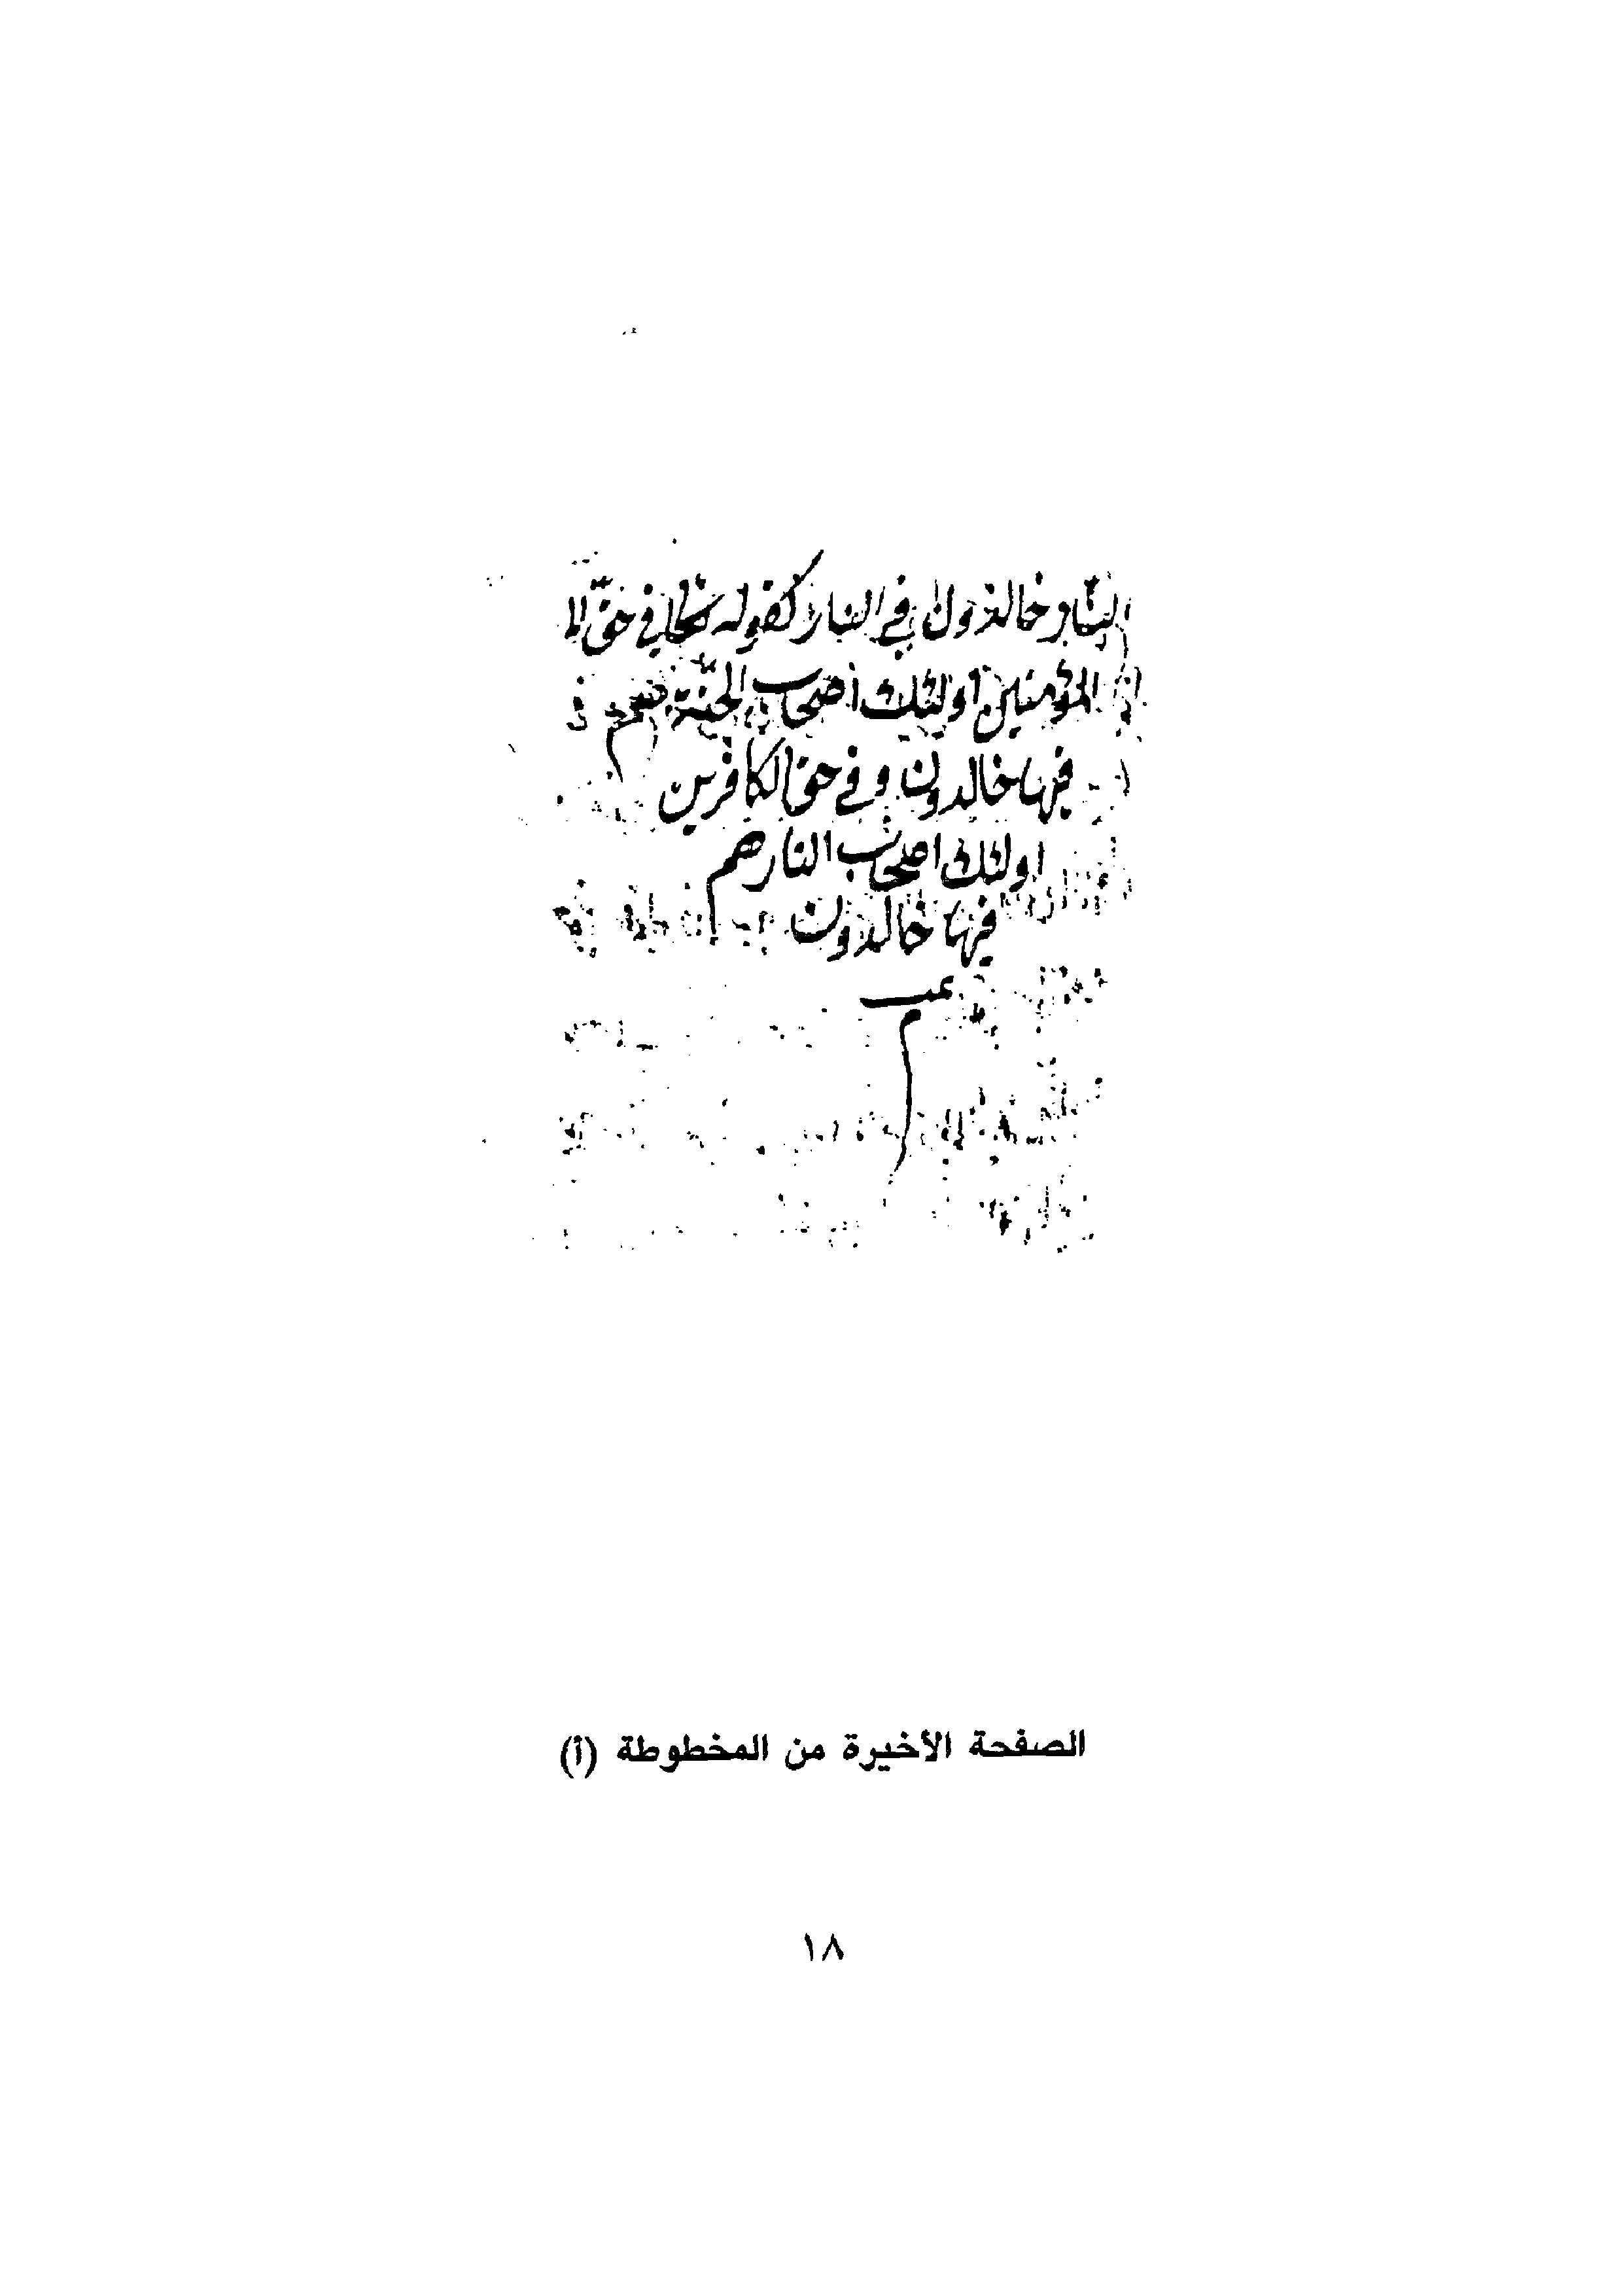 النار خالدون في النار كقوله تعالى في حق
المؤمنين اوليئك اصحاب الجنة هم
فيها خالدون وفي حق الكافرين
اولئك اصحاب النار هم
فيها خالدون
تمت
م
الصفحة الأخيرة من المخطوطة (أ)
١٨